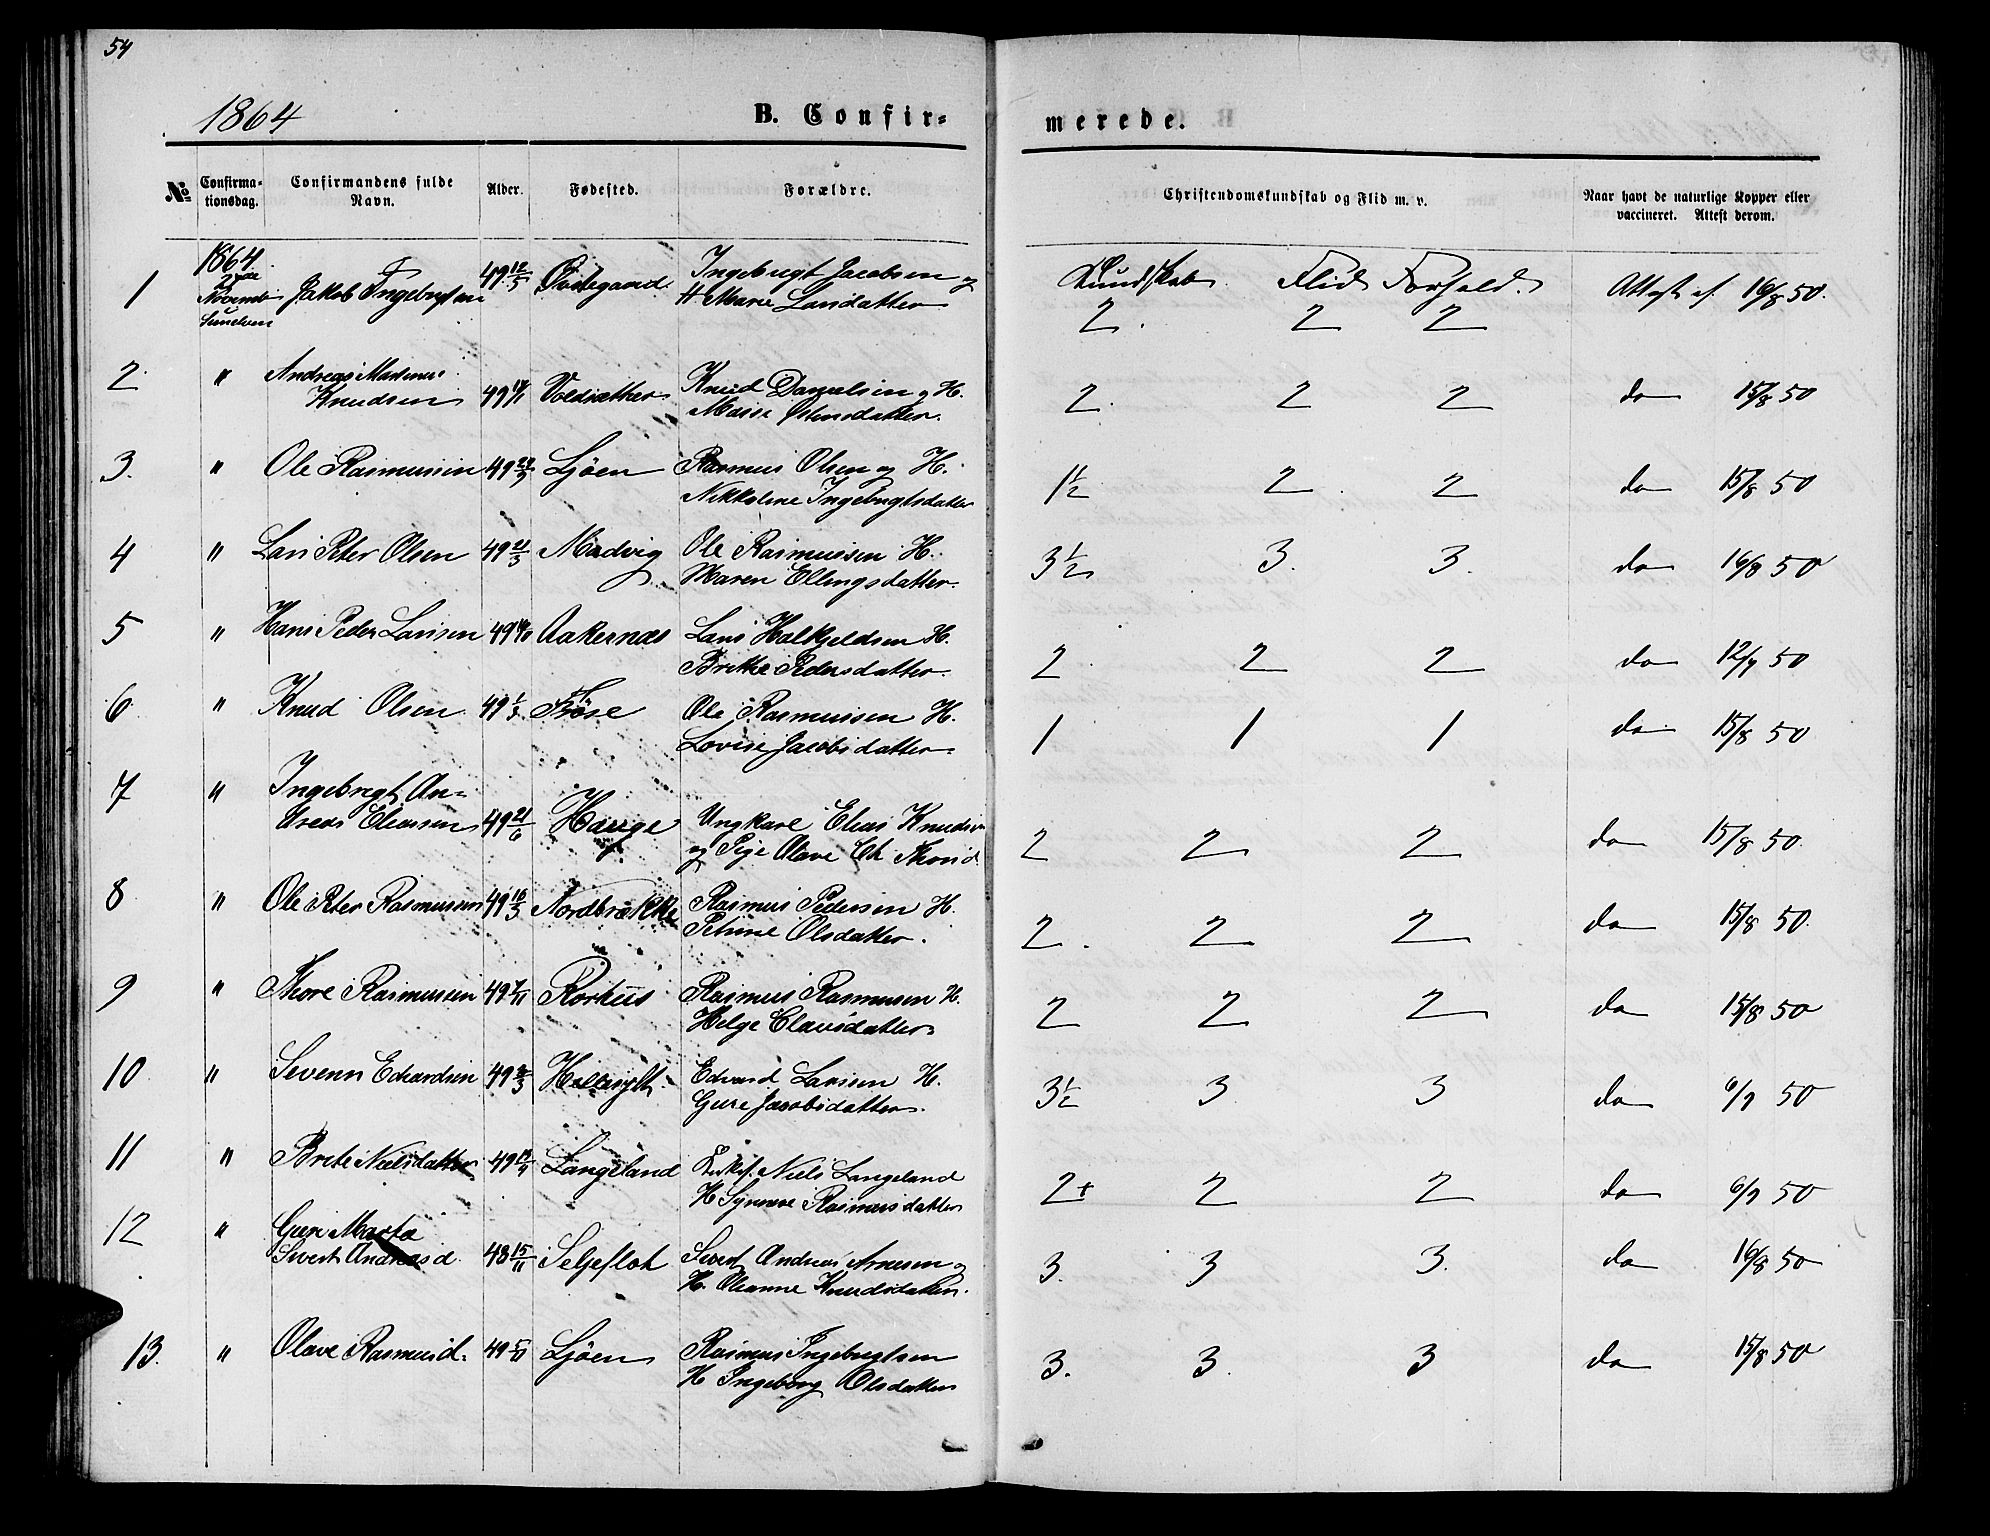 54
1864
B. Confir=
merede.
No
Confirma=
tionsdag.
Confirmandens fulde
Navn.
Alder.
Fødested.
Forældre.
Christendomskundskab og Flid m. v.
Naar havt de naturlige Kopper eller
vaccineret. Attest derom.
1864
2den
Novemb
Sunelven
1 Jakob Ingebrigtsen 49 12/5 Ingebrigt Jacobsen og
H Marie Larsdatter
Kundskab Flid Forhold.
2. 2 2 Attest af 16/8 50.
2. " Andreas
Knudsen 49 Voldsæther Knud Danielsen og H.
Masse Østensdatter.
2. 2 2 do 15/8 50
3. " Ole Rasmussen 49 Ljöen Rasmus Olsen og H.
Nikoline Ingebrigtsdatter
1½ 2 2 do 15/8 50
4 " Lars Peter Olsen 49 21/3 Madvig Ole Rasmussen H.
Maren Ellingsdatter.
3½ 3. 3. do 16/8 50
5 " Hans Peder Larsen 49 Aakernæs Lars Halkjeldsen H.
Brithe Pedersdatter.
2. 2 2 do 12/7 50
6. " Knud Olsen 49 Ole Rasmussen H.
Lovise Jacobsdatter
1 1 1 do 15/8 50
7 " Ingebrigt An=
dreas Eliassen 49 21/6 Hauge Ungkarl Elias Knudsen
og Pige Olave
2 2 2 do 15/8 50.
8 " Ole Peter Rasmussen 49 16/3 Nordbrække Rasmus Pedersen H.
Petrine Olsdatter.
2. 2 2 do 15/8 50.
9 " Thore Rasmussen 49 7/11 Korhus Rasmus Rasmussen H.
Helge Clausdatter
2 2 2 do 15/8 50
10 " Severin Edvardsen 49 Hellesylt Edvard Larsen H.
Gure Jacobsdatter.
3½ 3. 3 do 6/7 50
11 " Brite Nielsdatter 49 Langeland Enkef. Niels Langeland
H Synnøve Rasmusdatter
2+ 2 2 do 6/7 50
12 " Guri Marta
Sivert Andreasd 48 15/11 Seljeflot Sivert Andreas Arnesen og
H. Oleanne Knudsdatter.
3. 3 3. do 16/8 50
13. " Olave Rasmusd. 49 Ljöen Rasmus Ingebrigtsen
H Ingeborg Olsdatter
3. 3. 3 do 15/8 50